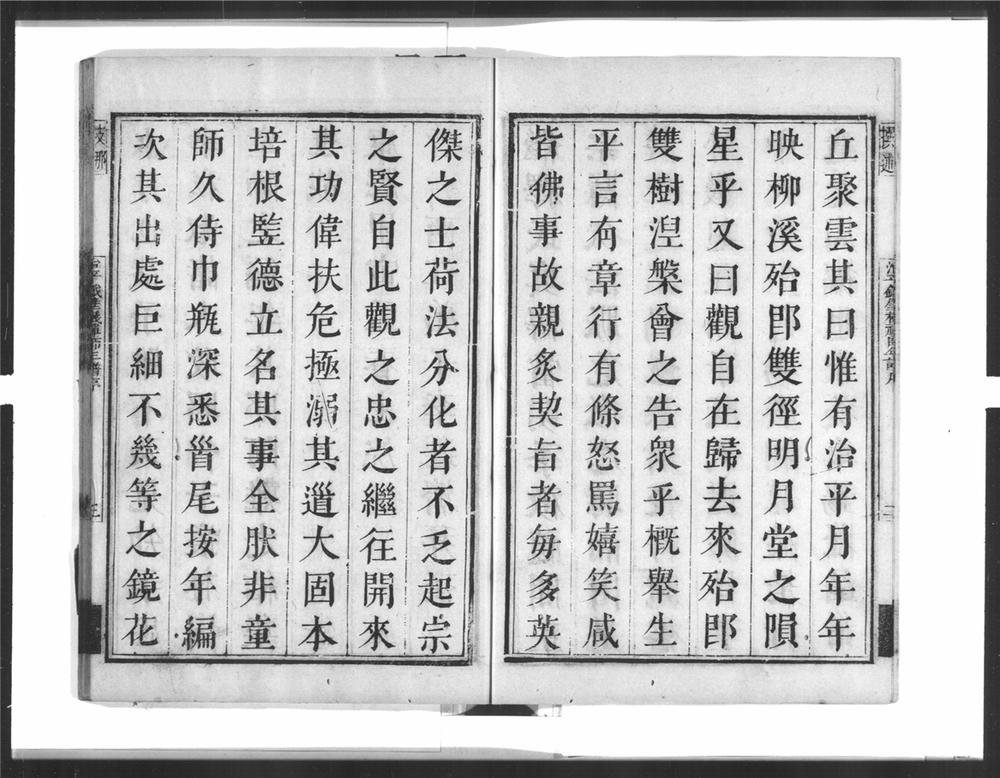 丘聚雲其曰惟有治平月年年
映柳溪殆卽雙徑明月堂之隕
星乎又曰觀自在歸去來殆卽
雙樹涅槃會之告衆乎概舉生
平言有章行有條怒罵嬉笑咸
皆佛事故親炙契旨者每多英
傑之士荷法分化者不乏起宗
之賢自此觀之忠之繼往開來
其功偉扶危極溺其道大固本
培根監德立名其事全肰非童
師久侍巾瓶深悉首尾按年編
次其出處巨細不幾等之鏡花
支那
三
撰述
二